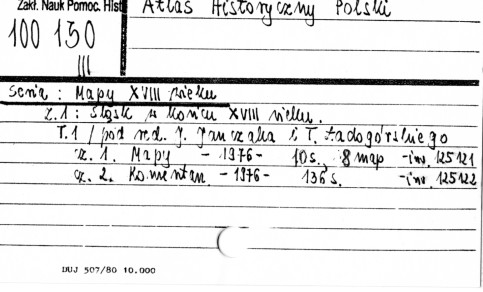 Zakł. Nauk Pomoc. Hist
Atlas Historyczny Polski
100 150
III
Seria : Mapy XVIII wieku
z. 1 : Śląsk w końcu XVIII wieku.
T. 1 / pod red. J. Janczaka i T. Ładogórskiego
cz. 1. Mapy - 1976 - 10 s. 8 map - inw. 125121
cz. 2. Komentarz - 1976 - 136 s. - inw. 125122
DUJ 507/80 10.000